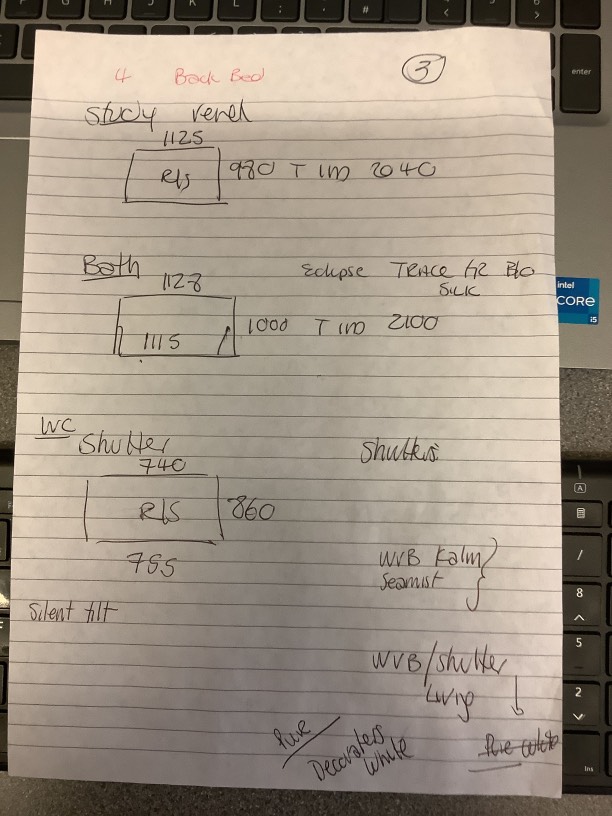 4 Back Bed
3
Study
1125
R/S 980 T 2040
Bath
1128
Eclipse TRACE B/O
SILK
1115 1000 T 2100
WC
Shutter
740
Shutters
R/S 860
755
WVB Kalm
Seamist
Silent tilt
WVB/Shutter
Pure
Decorators
White
Pure White
intel
CORE
i5
enter
Ins